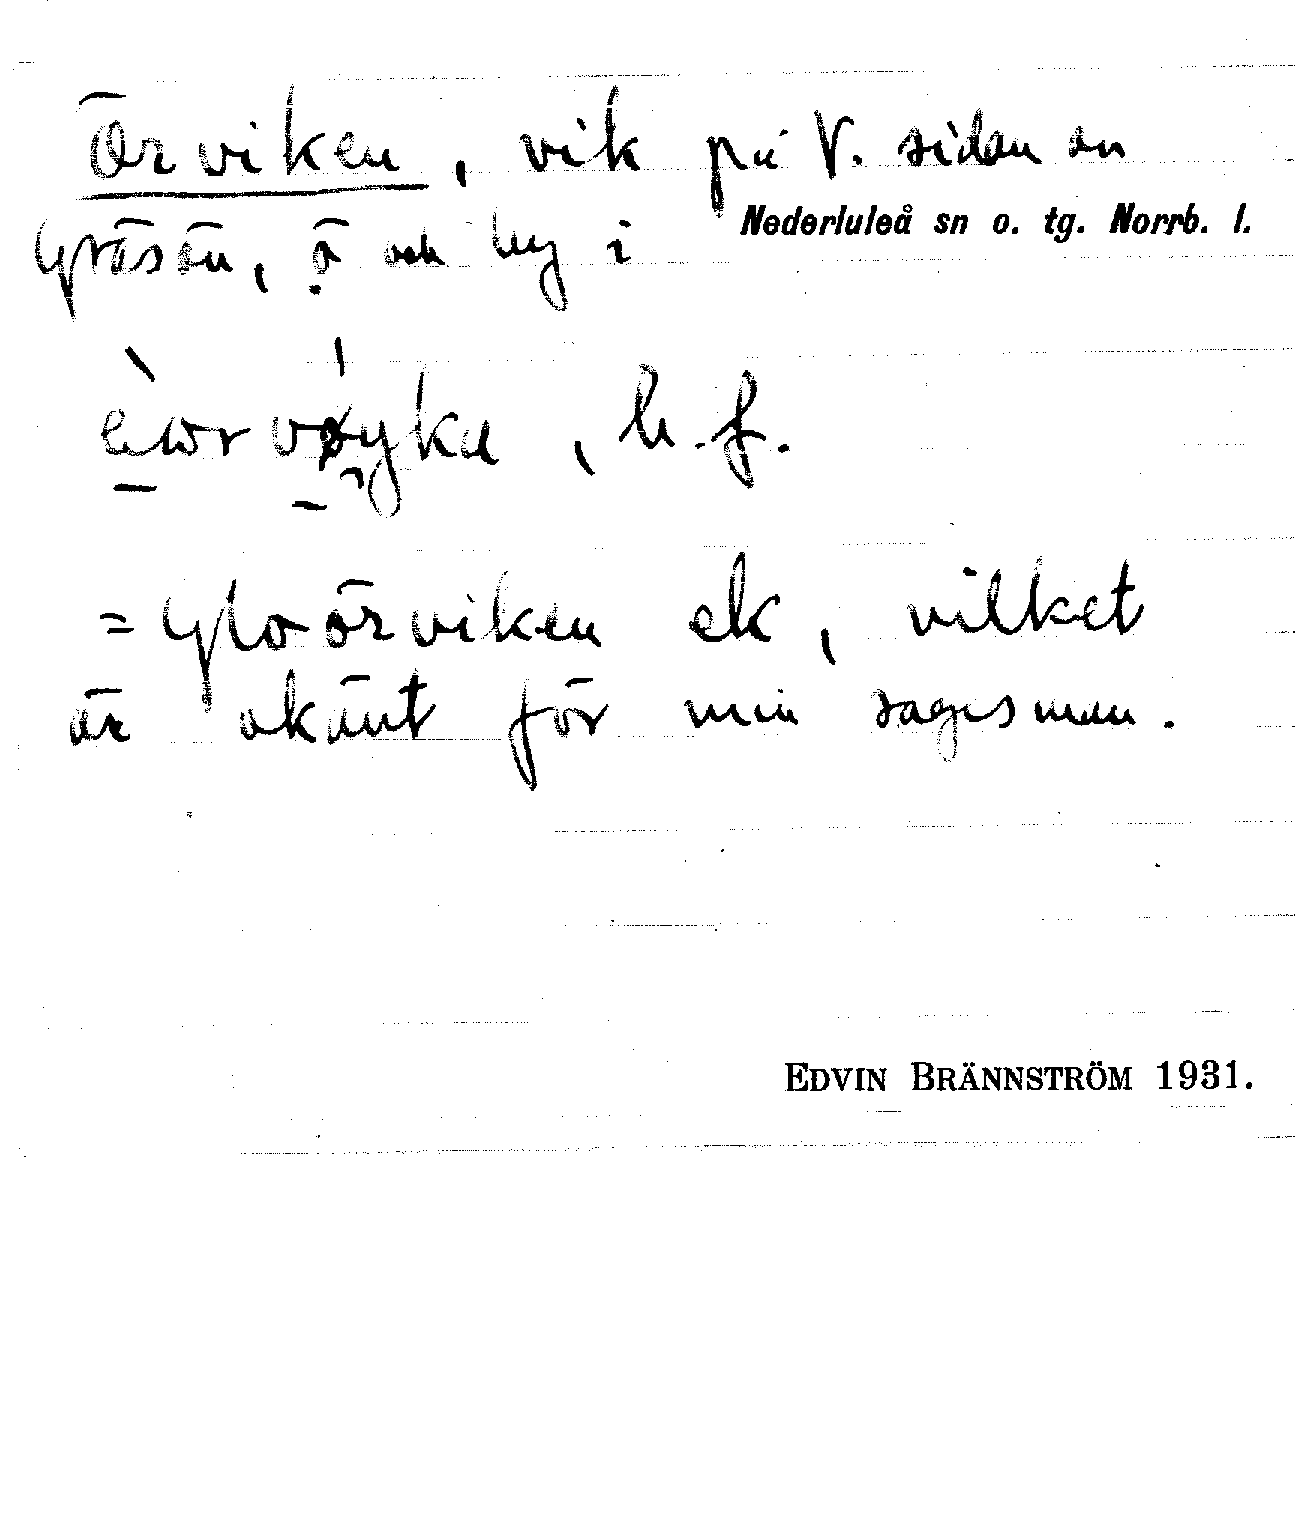 Örviken, vik på V. sidan av
Gräsön, ö och by i Nederluleå sn o. tg. Norrb. l.
, b. f.
= Gloörviken ek, vilket
är okänt för min sagesman.
EDVIN BRÄNNSTRÖM 1931.